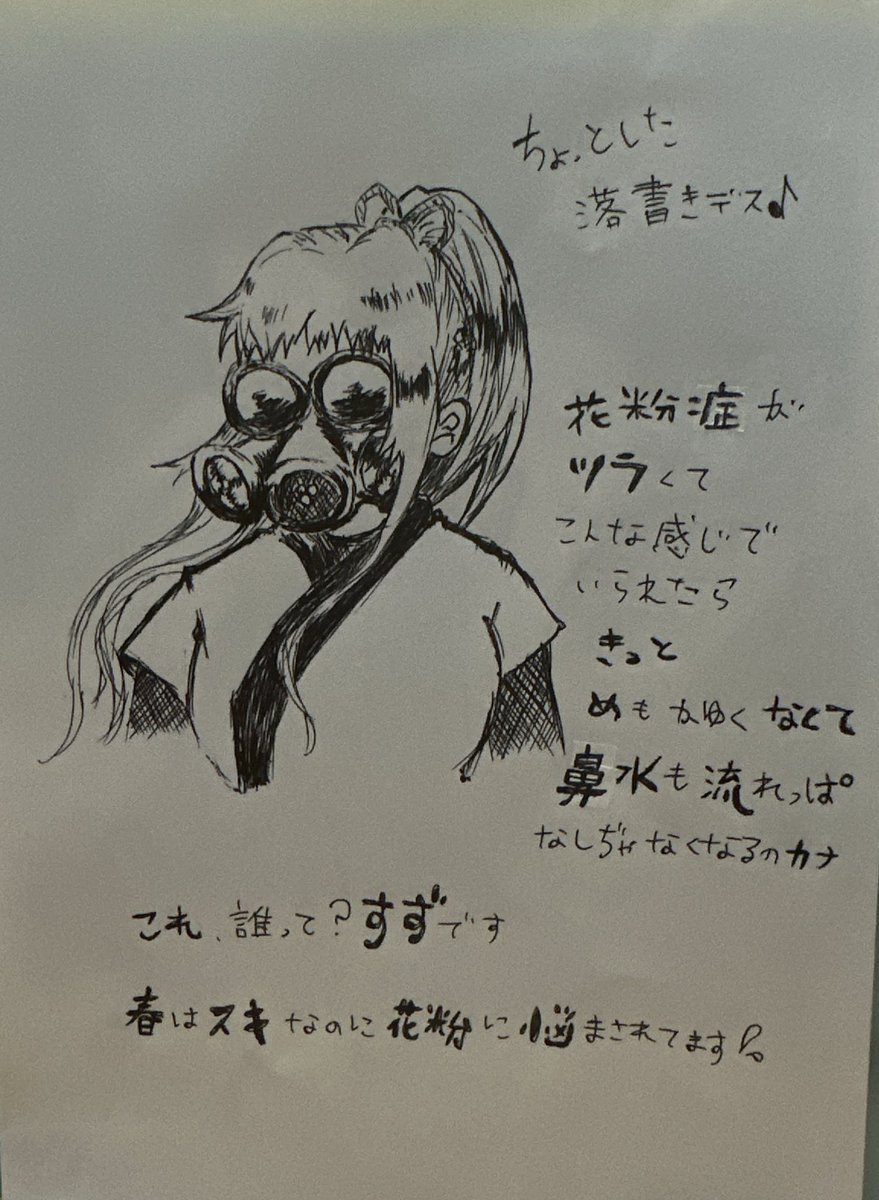 ちょっとした
落書きデス♪
花粉症が
ツラくて
こんな感じで
いられたら
きっと
めもかゆくなくて
鼻水も流れっぱ
なしぢゃなくなるのカナ
これ、誰って?すずです
春はスキなのに花粉に悩まされてます